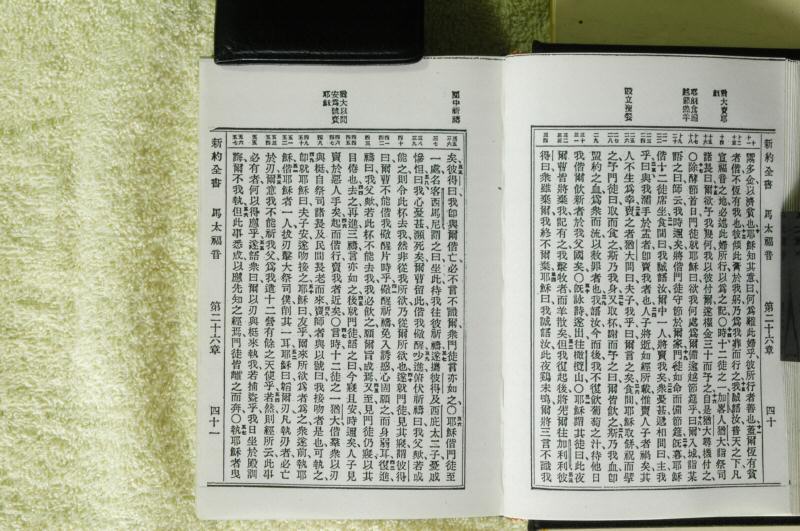 新約全書 馬太福音 第二十六章 四十
猶大賣耶穌
耶穌食逾越節羔羊
設立聖餐
需多金以濟貧也耶穌知其意曰何爲難此婦乎彼所行者善也蓋爾恆有貧
者偕不恆有我也彼傾此膏於我躬乃爲我葬而行之我誠語汝普天之下凡
宣福音之地必述此婦所行以爲之記〇時十二徒之一加畧人猶大詣祭司
諸長曰爾欲予我幾何我以彼付爾遂權金三十而予之自是猶大尋機付之
〇除酵節首日門徒就耶穌曰欲我何處爲爾備逾越節筵乎曰爾入城詣某
語之曰師云我時邇矣將偕門徒守節於爾家門徒如命而備節筵旣暮耶穌
偕十二徒席坐食間曰我誠語汝爾中一人將賣我矣衆憂甚遞相問曰主我
乎曰與我濡手於盂者卽賣我者也人子將逝如經所載惟賣人子者禍矣其
人不生爲幸賣之者猶大問曰夫子我乎曰爾言之矣食間耶穌取餅祝而擘
之予門徒曰取而食之斯乃我身又取杯謝而予之曰爾皆飲之斯乃我血卽
盟約之血爲衆而流以赦罪者也我語汝今而後我不復飲葡萄之汁待他日
我偕爾飲新者於我父國矣〇旣詠詩遂出往橄欖山〇耶穌謂其徒曰此夜
爾曹皆將棄我記有之我擊牧者而羊散矣但我復起後將先爾往加利利彼
得曰衆雖棄爾我終不爾棄耶穌曰我誠語汝此夜鷄未鳴爾將三言不識我
園中祈禱
猶大以問安爲號賣耶穌
矣彼得曰我卽與爾偕亡必不言不識爾衆門徒言亦如之〇耶穌偕門徒至
一處名客西馬尼謂之曰坐此待我往彼祈禱遂攜彼得及西庇太二子憂戚
慘怛曰我心憂甚瀕死矣爾曹留此偕我儆醒少進俯伏祈禱曰我父歟若或
能之則令此杯去我然非從我所欲乃從爾所欲也遂就門徒見其寢謂彼得
曰爾曹不能偕我儆醒片時乎儆醒祈禱免入誘惑心固願之而身弱耳復進
禱曰我父歟若此杯不能去我我必飲之願爾旨成焉又至見門徒仍寢以其
目倦也去之再進三禱言亦如之後就門徒語之曰今寢且安時邇矣人子見
賣於惡人手矣起而偕行賣我者近矣〇言時十二徒之一猶大偕羣衆以刃
與梃自祭司諸長及民間長老而來賣師者與以號曰我接吻者是也可執之
卽就耶穌曰夫子安遂吻接之耶穌曰友乎爾來所欲爲者爲之衆遂前執耶
穌偕耶穌者一人拔刃擊大祭司僕削其一耳耶穌曰韜爾刃凡執刃者必亡
於刃爾意我不能祈我父爲我遣十二營有餘之天使乎若然則經所云此事
必有者何以得應乎遂語衆曰爾以刃與梃來執我若捕盜乎我日坐於殿訓
誨爾不我執但此事悉成以應先知之經焉門徒皆離之而奔〇執耶穌者曳
新約全書 馬太福音 第二十六章 四十一